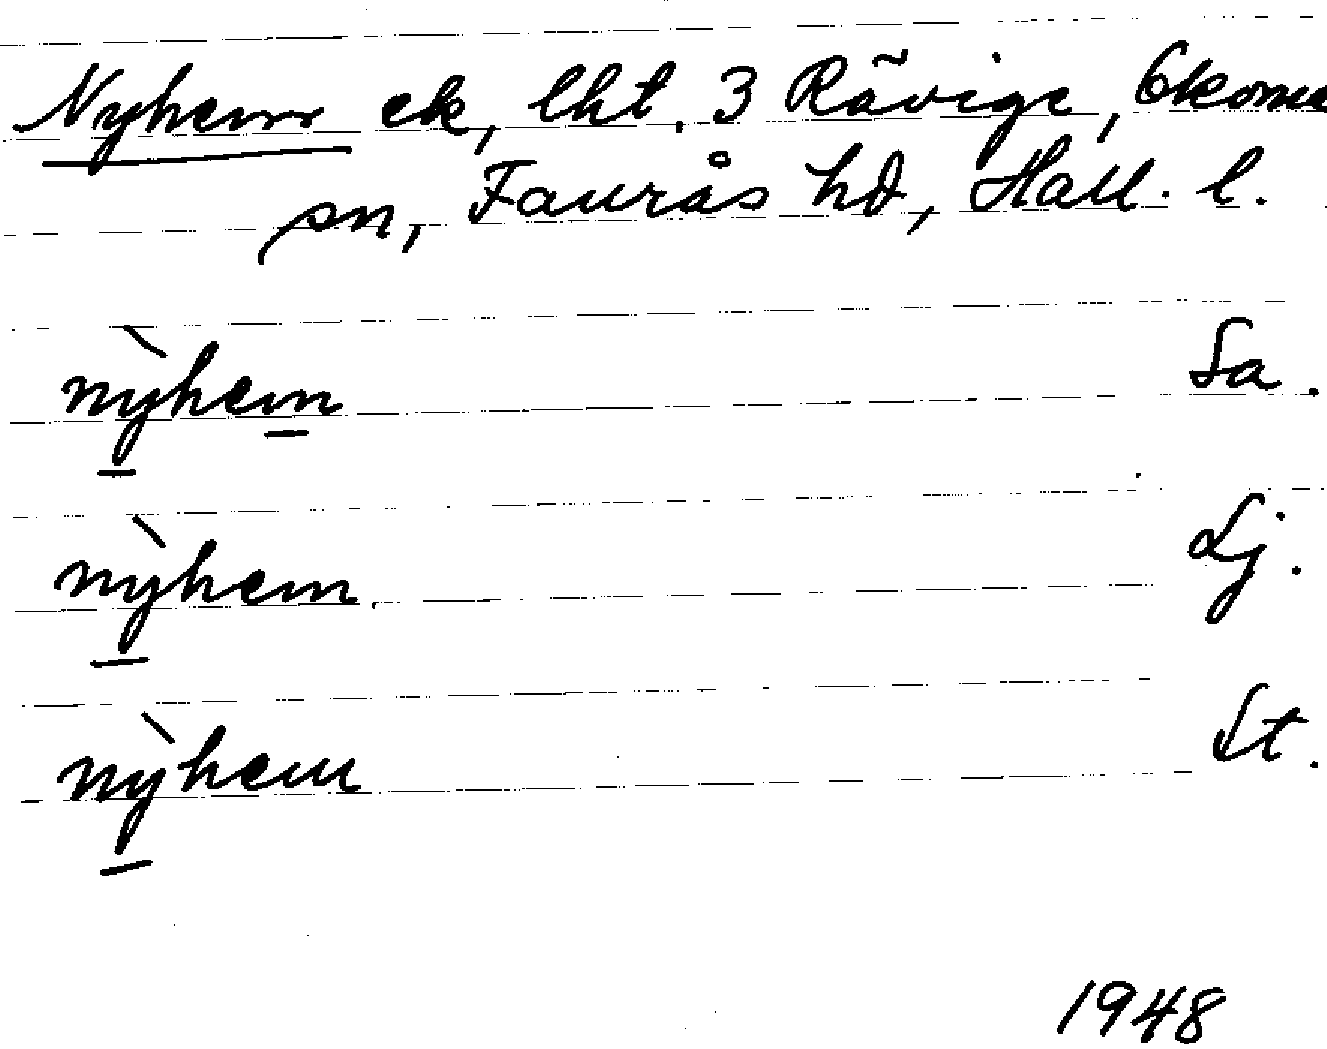 Nyhem ek, lht. 3 Rävige, Okome
sn, Faurås hd, Hall. l.
nỳhem Sa.
nỳhem Lj.
nỳhem St.
1948